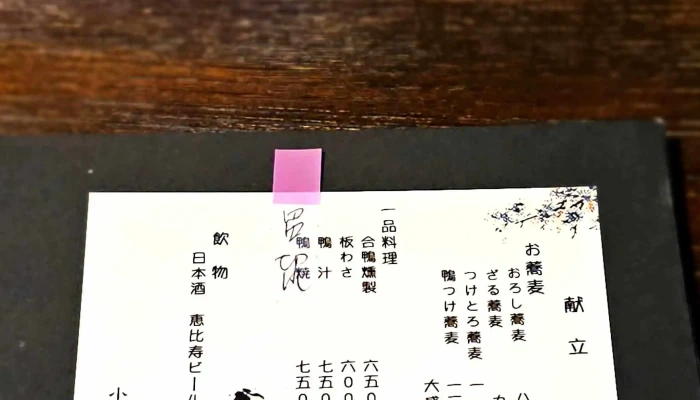 献立
お蕎麦
おろし蕎麦 八
ざる蕎麦 九
つけとろ蕎麦 一
鴨つけ蕎麦 一一
大盛
一品料理
合鴨燻製 六五〇
板わさ 六〇〇
鴨汁 七五〇
鴨焼 七五〇
飲物
日本酒 恵比寿ビール
小